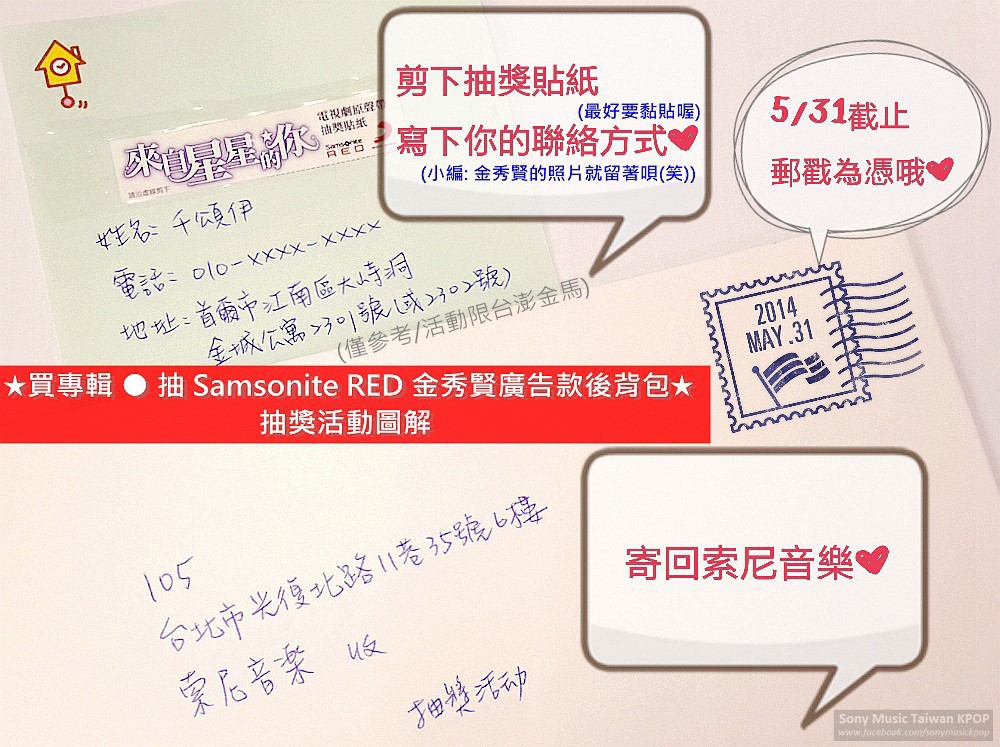 剪下抽獎貼紙
(最好要黏貼喔)
寫下你的聯絡方式
(小編: 金秀賢的照片就留著唄(笑))
5/31截止
郵戳為憑哦
電視劇原聲帶
抽獎貼紙
來自星星的你
Samsonite
RED
請沿虛線剪下
姓名: 千頌伊
電話: 010-XXXX-XXXX
地址: 首爾市江南區大峙洞
金城公寓2301號(或2302號)
(僅參考/活動限台澎金馬)
2014
MAY.31
★買專輯 ● 抽 Samsonite RED 金秀賢廣告款後背包★
抽獎活動圖解
105
台北市光復北路11巷35號6樓
索尼音樂 收
抽獎活动
寄回索尼音樂
Sony Music Taiwan KPOP
www.facebook.com/sonymusickpop